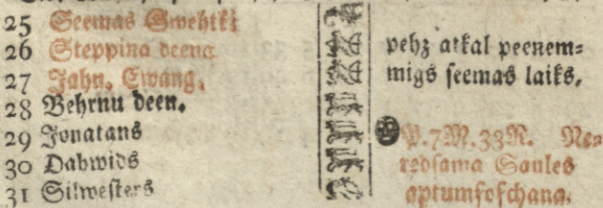 25 Seemas Swehtki
26 Steppina deena
27 Jahn. Ewang.
28 Behrnu deen.
29 Jonatans
30 Dahwids
31 Silwesters
pehz atkal peenem=
migs seemas laiks.
P. 7 M. 33 N. Ne=
redsama Saules
aptumsoschana.